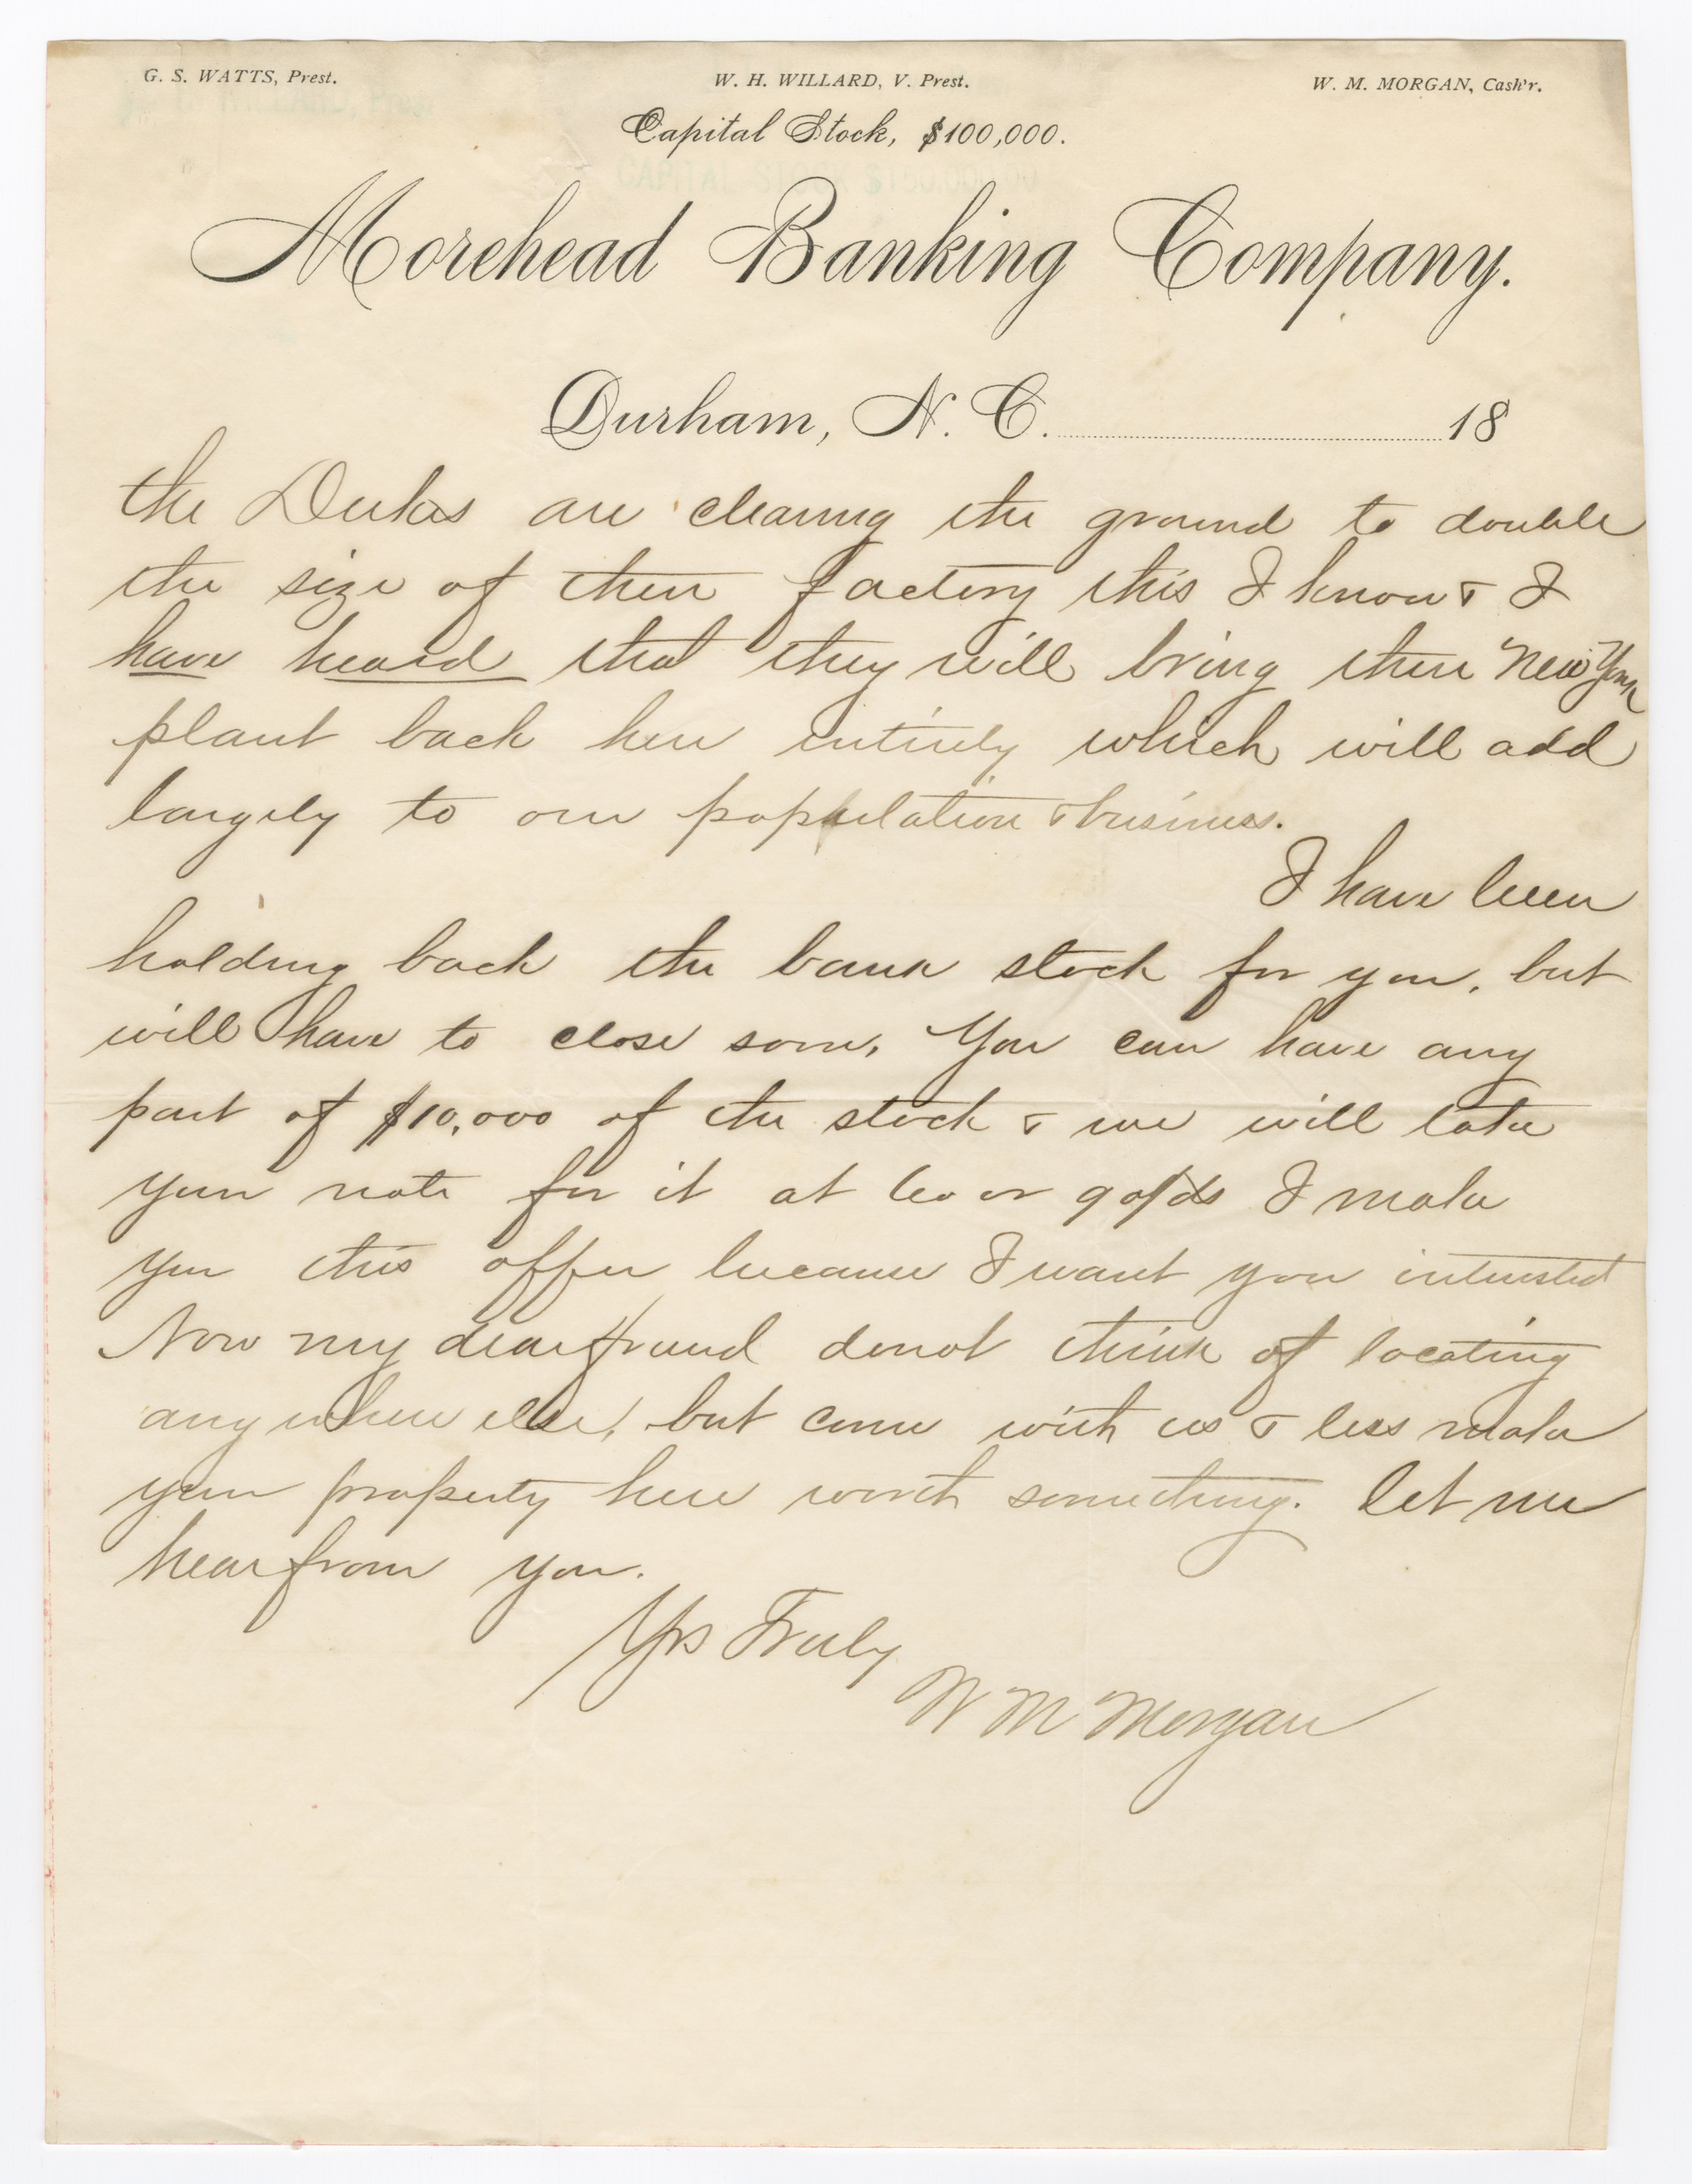 G. S. WATTS, Prest. W. H. WILLARD, V. Prest. W. M. MORGAN, Cash'r.
Capital Stock, $100,000.
Morehead Banking Company.
Durham, N. C. 18
the Dukes are clearing the ground to double
the size of their factory this I know & I
have heard that they will bring their New York
plant back here entirely which will add
largely to our population & business.
I have been
holding back the bank stock for you, but
will have to close soon, You can have any
part of $10,000 of the stock & we will take
your note for it at 60 or 90/ds I make
you this offer because I want you interested
Now my dear friend do not think of locating
any where else, but come with us & less make
your property here worth something. let me
hear from you.
Yrs Truly
W M Morgan